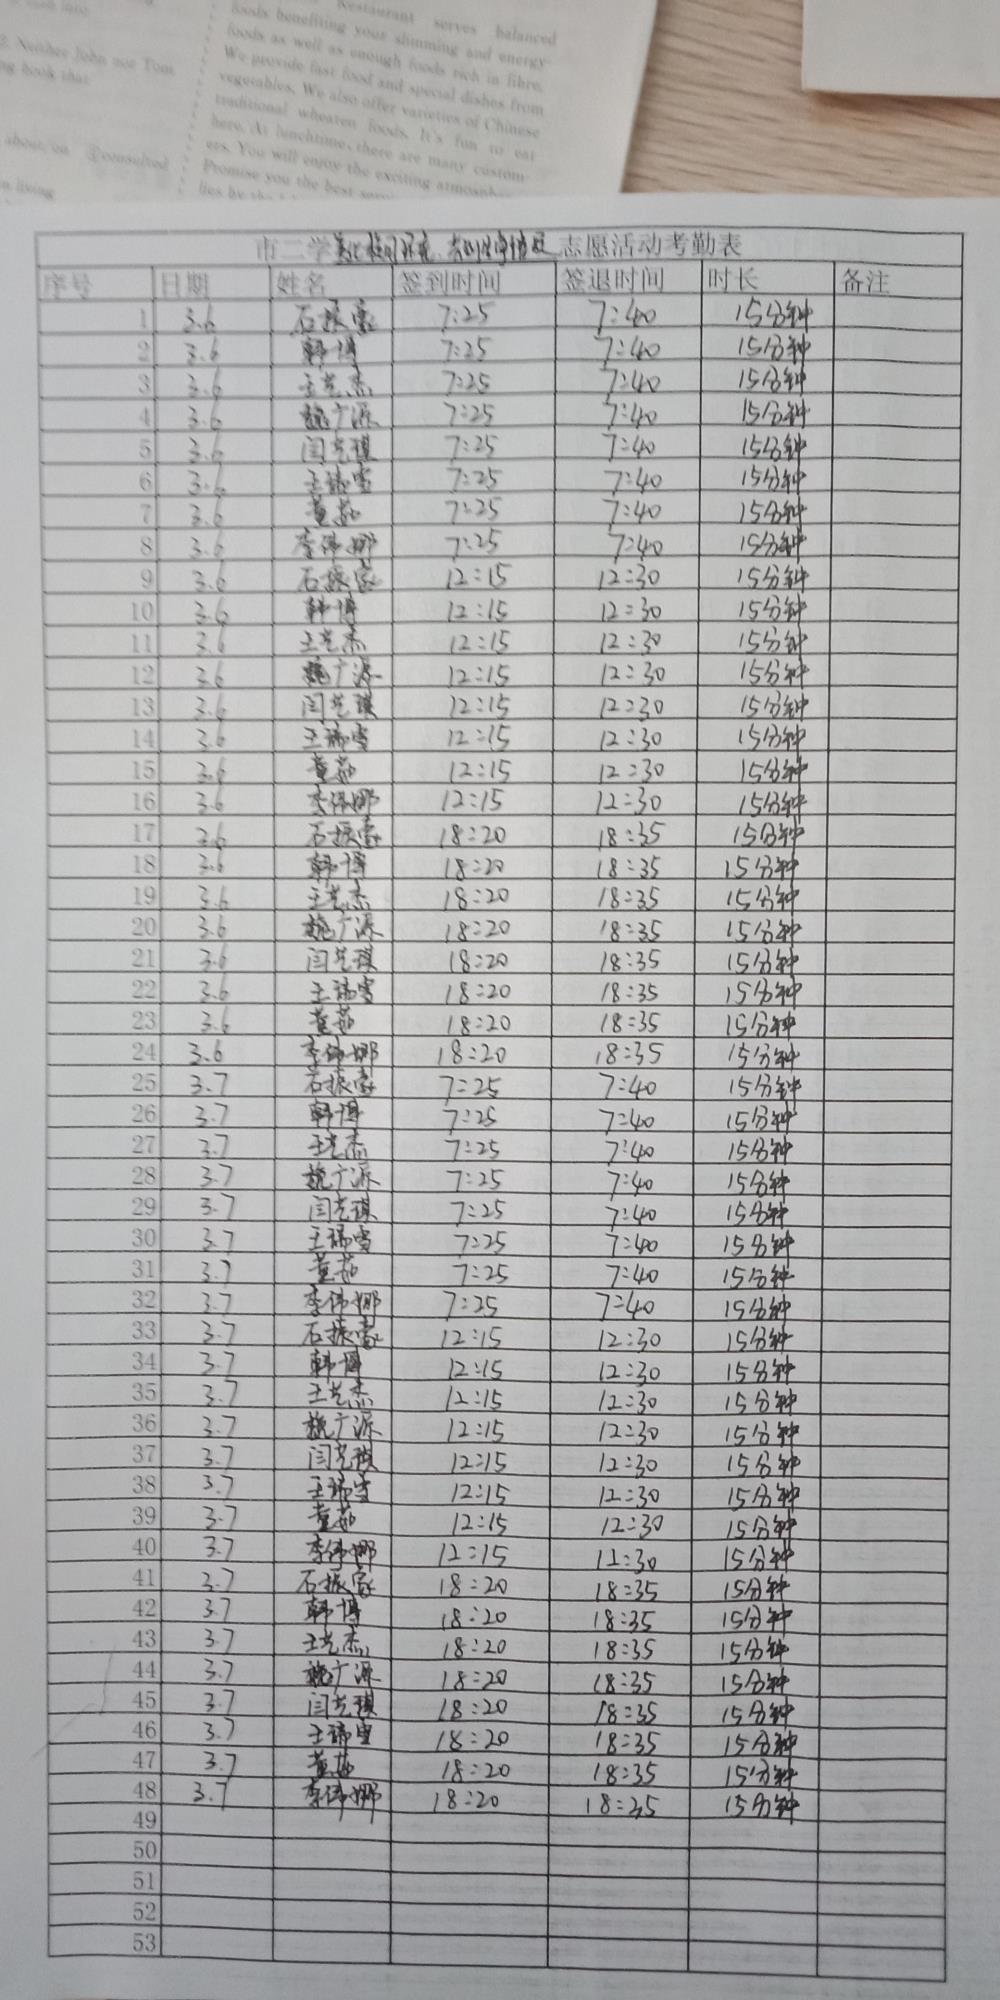 Restaurant serves balanced
foods benefiting your slimming and energy
foods as well as enough foods rich in fibre.
We provide fast food and special dishes from
vegetables. We also offer varieties of Chinese
traditional wheaten foods. It's fun to eat
here. At lunchtime, there are many custom-
ers. You will enjoy the exciting atmosphere
Promise you the best
lies by the
2. Neither John nor Tom
ng book that
about, on consulted
n living
市二学 志愿活动考勤表
序号 日期 姓名 签到时间 签退时间 时长 备注
1 3.6 石振豪 7:25 7:40 15分钟
2 3.6 韩博 7:25 7:40 15分钟
3 3.6 王艺杰 7:25 7:40 15分钟
4 3.6 魏广源 7:25 7:40 15分钟
5 3.6 闫艺琪 7:25 7:40 15分钟
6 3.6 王瑞雪 7:25 7:40 15分钟
7 3.6 董茹 7:25 7:40 15分钟
8 3.6 李伟娜 7:25 7:40 15分钟
9 3.6 石振豪 12:15 12:30 15分钟
10 3.6 韩博 12:15 12:30 15分钟
11 3.6 王艺杰 12:15 12:30 15分钟
12 3.6 魏广源 12:15 12:30 15分钟
13 3.6 闫艺琪 12:15 12:30 15分钟
14 3.6 王瑞雪 12:15 12:30 15分钟
15 3.6 董茹 12:15 12:30 15分钟
16 3.6 李伟娜 12:15 12:30 15分钟
17 3.6 石振豪 18:20 18:35 15分钟
18 3.6 韩博 18:20 18:35 15分钟
19 3.6 王艺杰 18:20 18:35 15分钟
20 3.6 魏广源 18:20 18:35 15分钟
21 3.6 闫艺琪 18:20 18:35 15分钟
22 3.6 王瑞雪 18:20 18:35 15分钟
23 3.6 董茹 18:20 18:35 15分钟
24 3.6 李伟娜 18:20 18:35 15分钟
25 3.7 石振豪 7:25 7:40 15分钟
26 3.7 韩博 7:25 7:40 15分钟
27 3.7 王艺杰 7:25 7:40 15分钟
28 3.7 魏广源 7:25 7:40 15分钟
29 3.7 闫艺琪 7:25 7:40 15分钟
30 3.7 王瑞雪 7:25 7:40 15分钟
31 3.7 董茹 7:25 7:40 15分钟
32 3.7 李伟娜 7:25 7:40 15分钟
33 3.7 石振豪 12:15 12:30 15分钟
34 3.7 韩博 12:15 12:30 15分钟
35 3.7 王艺杰 12:15 12:30 15分钟
36 3.7 魏广源 12:15 12:30 15分钟
37 3.7 闫艺琪 12:15 12:30 15分钟
38 3.7 王瑞雪 12:15 12:30 15分钟
39 3.7 董茹 12:15 12:30 15分钟
40 3.7 李伟娜 12:15 12:30 15分钟
41 3.7 石振豪 18:20 18:35 15分钟
42 3.7 韩博 18:20 18:35 15分钟
43 3.7 王艺杰 18:20 18:35 15分钟
44 3.7 魏广源 18:20 18:35 15分钟
45 3.7 闫艺琪 18:20 18:35 15分钟
46 3.7 王瑞雪 18:20 18:35 15分钟
47 3.7 董茹 18:20 18:35 15分钟
48 3.7 李伟娜 18:20 18:35 15分钟
49
50
51
52
53